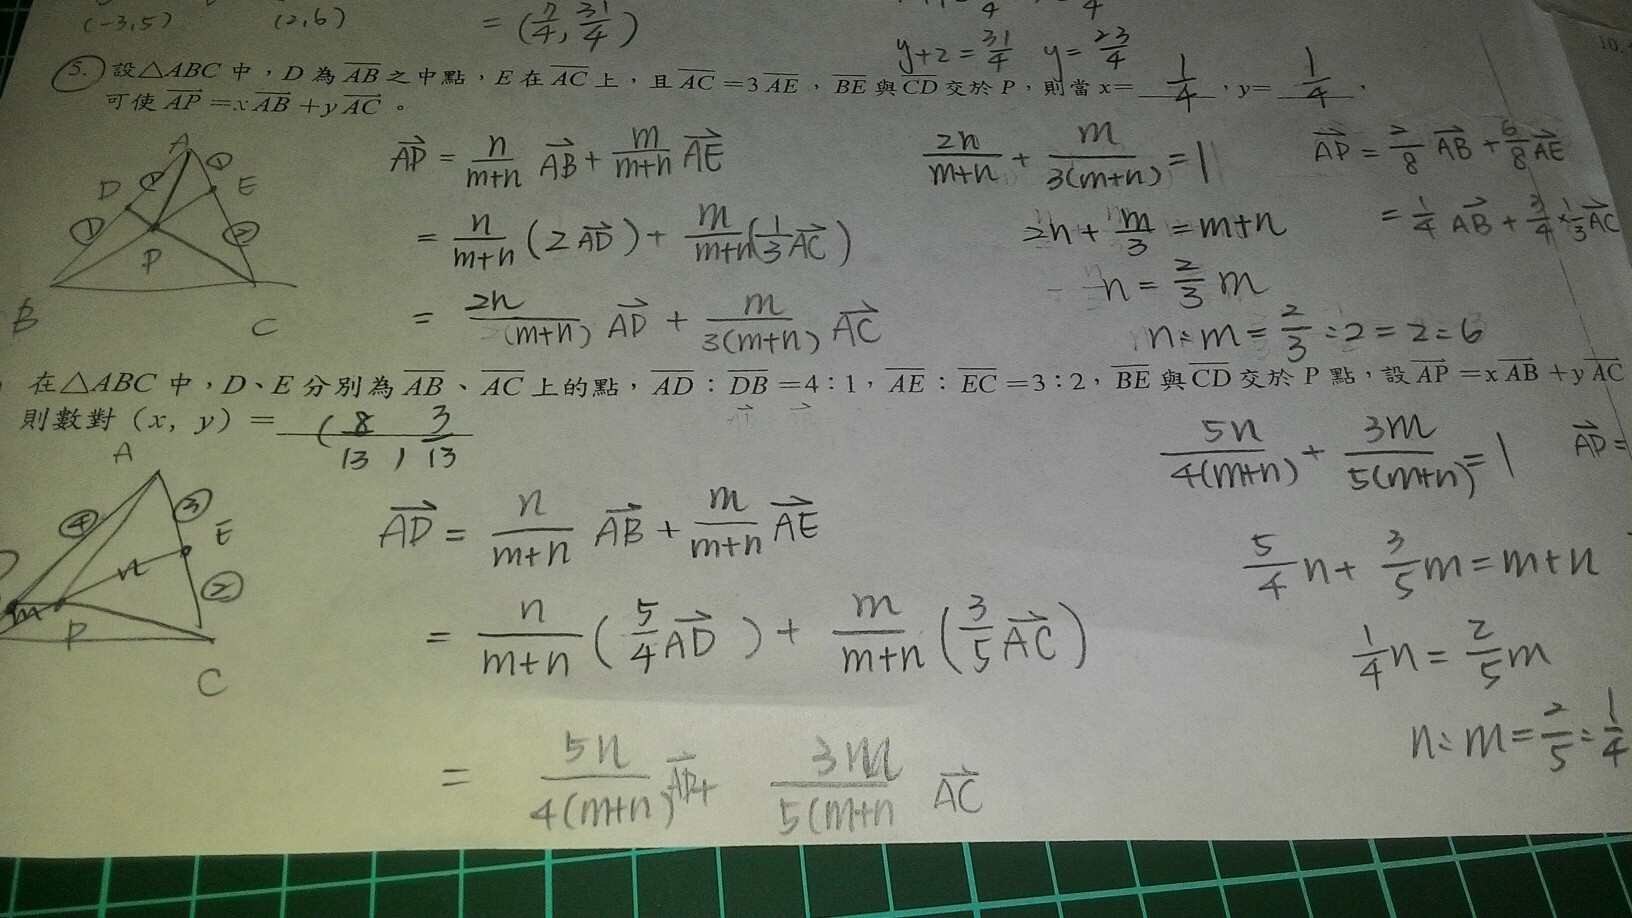 (-3,5) (2,6) = (7/4, 31/4)
y+2 = 31/4 y = 23/4
5. 設△ABC 中，D 為 AB 之中點，E 在 AC 上，且 AC = 3 AE，BE 與 CD 交於 P，則當 x= 1/4，y= 1/4，
可使 AP = x AB + y AC。
A
D ① ① E
① ②
P
B C
AP = n/(m+n) AB + m/(m+n) AE
= n/(m+n) (2AD) + m/(m+n) (1/3 AC)
= 2n/(m+n) AD + m/3(m+n) AC
2n/(m+n) + m/3(m+n) = 1
2n + m/3 = m+n
n = 2/3 m
n:m = 2/3 : 2 = 2 = 6
AP = 2/8 AB + 6/8 AE
= 1/4 AB + 3/4 × 1/3 AC
在△ABC 中，D、E 分別為 AB、AC 上的點，AD：DB = 4：1，AE：EC = 3：2，BE 與 CD 交於 P 點，設 AP = x AB + y AC
則數對（x, y）= (8/13, 3/13
A
④ ③ E
n ②
m P
C
AP = n/(m+n) AB + m/(m+n) AE
= n/(m+n) (5/4 AD) + m/(m+n) (3/5 AC)
= 5n/4(m+n) AD + 3m/5(m+n AC
5n/4(m+n) + 3m/5(m+n) = 1
AP =
5/4 n + 3/5 m = m+n
1/4 n = 2/5 m
n:m = 2/5 : 1/4